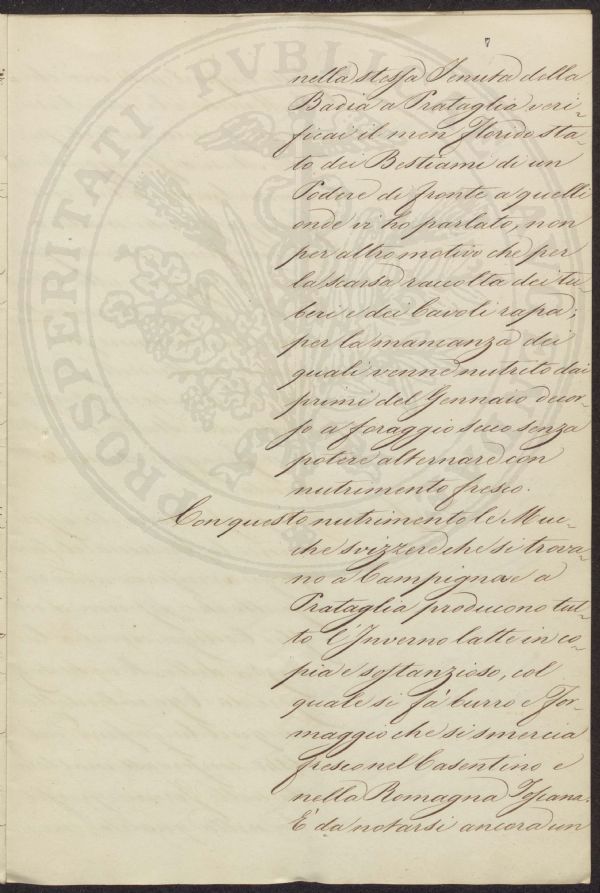 7
nella stessa Tenuta della
Badia a Prataglia veri-
ficai il men florido sta-
to dei Bestiami di un
Podere di fronte a quelli
onde vi ho parlato, non
per altro motivo che per
la scarsa raccolta dei tu-
beri e dei Cavoli rapa;
per la mancanza dei
quali venne nutrito dai
primi del Gennaio decor-
so a foraggio secco senza
potere alternare con
nutrimento fresco.
Con questo nutrimento le Muc-
che svizzere che si trova-
no a Campigna e a
Prataglia producono tut-
to l'Inverno latte in co-
pia e sostanzioso, col
quale si fà burro e For-
maggio che si smercia
fresco nel Casentino e
nella Romagna Toscana.
E' da notarsi ancora un
PROSPERITATI PVBLICAE